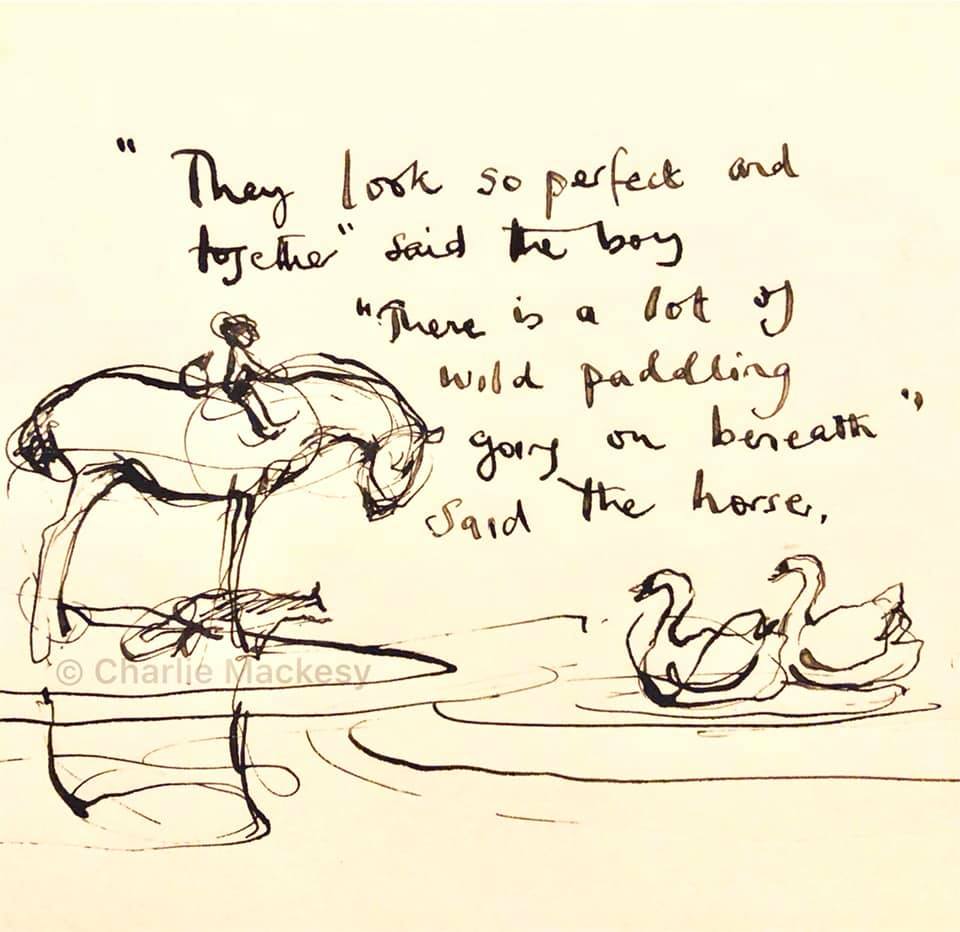 "They look so perfect and
together" said the boy
"There is a lot of
wild paddling
going on beneath"
said the horse.
© Charlie Mackesy